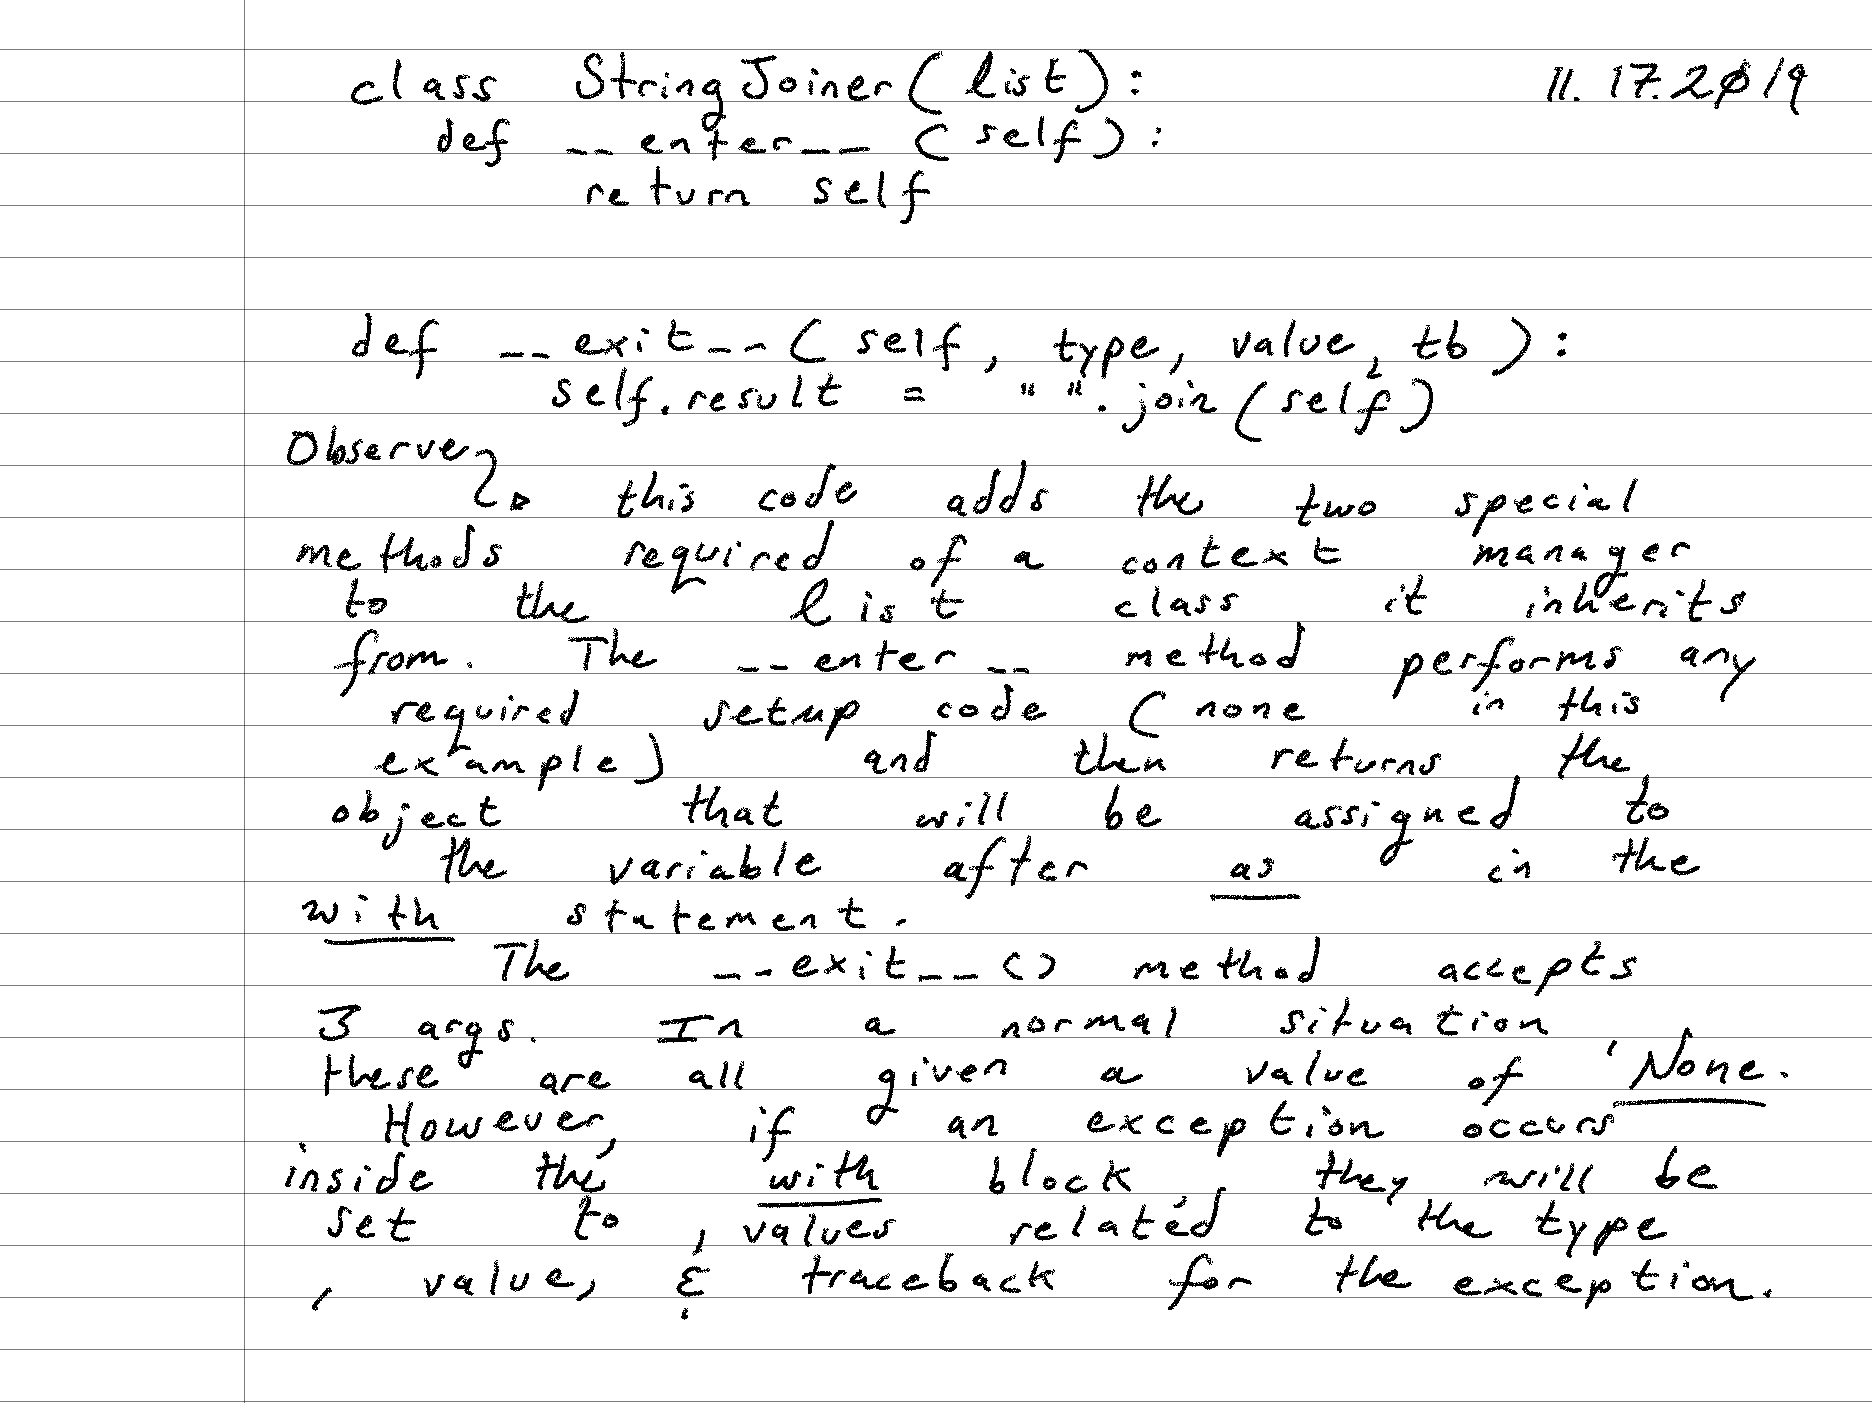 class StringJoiner(list): 11.17.2019
def __enter__(self):
return self
def __exit__(self, type, value, tb):
self.result = "".join(self)
Observe
this code adds the two special
methods required of a context manager
to the list class it inherits
from. The __enter__ method performs any
required setup code (none in this
example) and then returns the
object that will be assigned to
the variable after as in the
with statement.
The __exit__() method accepts
3 args. In a normal situation
these are all given a value of 'None.
However, if an exception occurs
inside the with block, they will be
set to values related to the type
, value, & traceback for the exception.